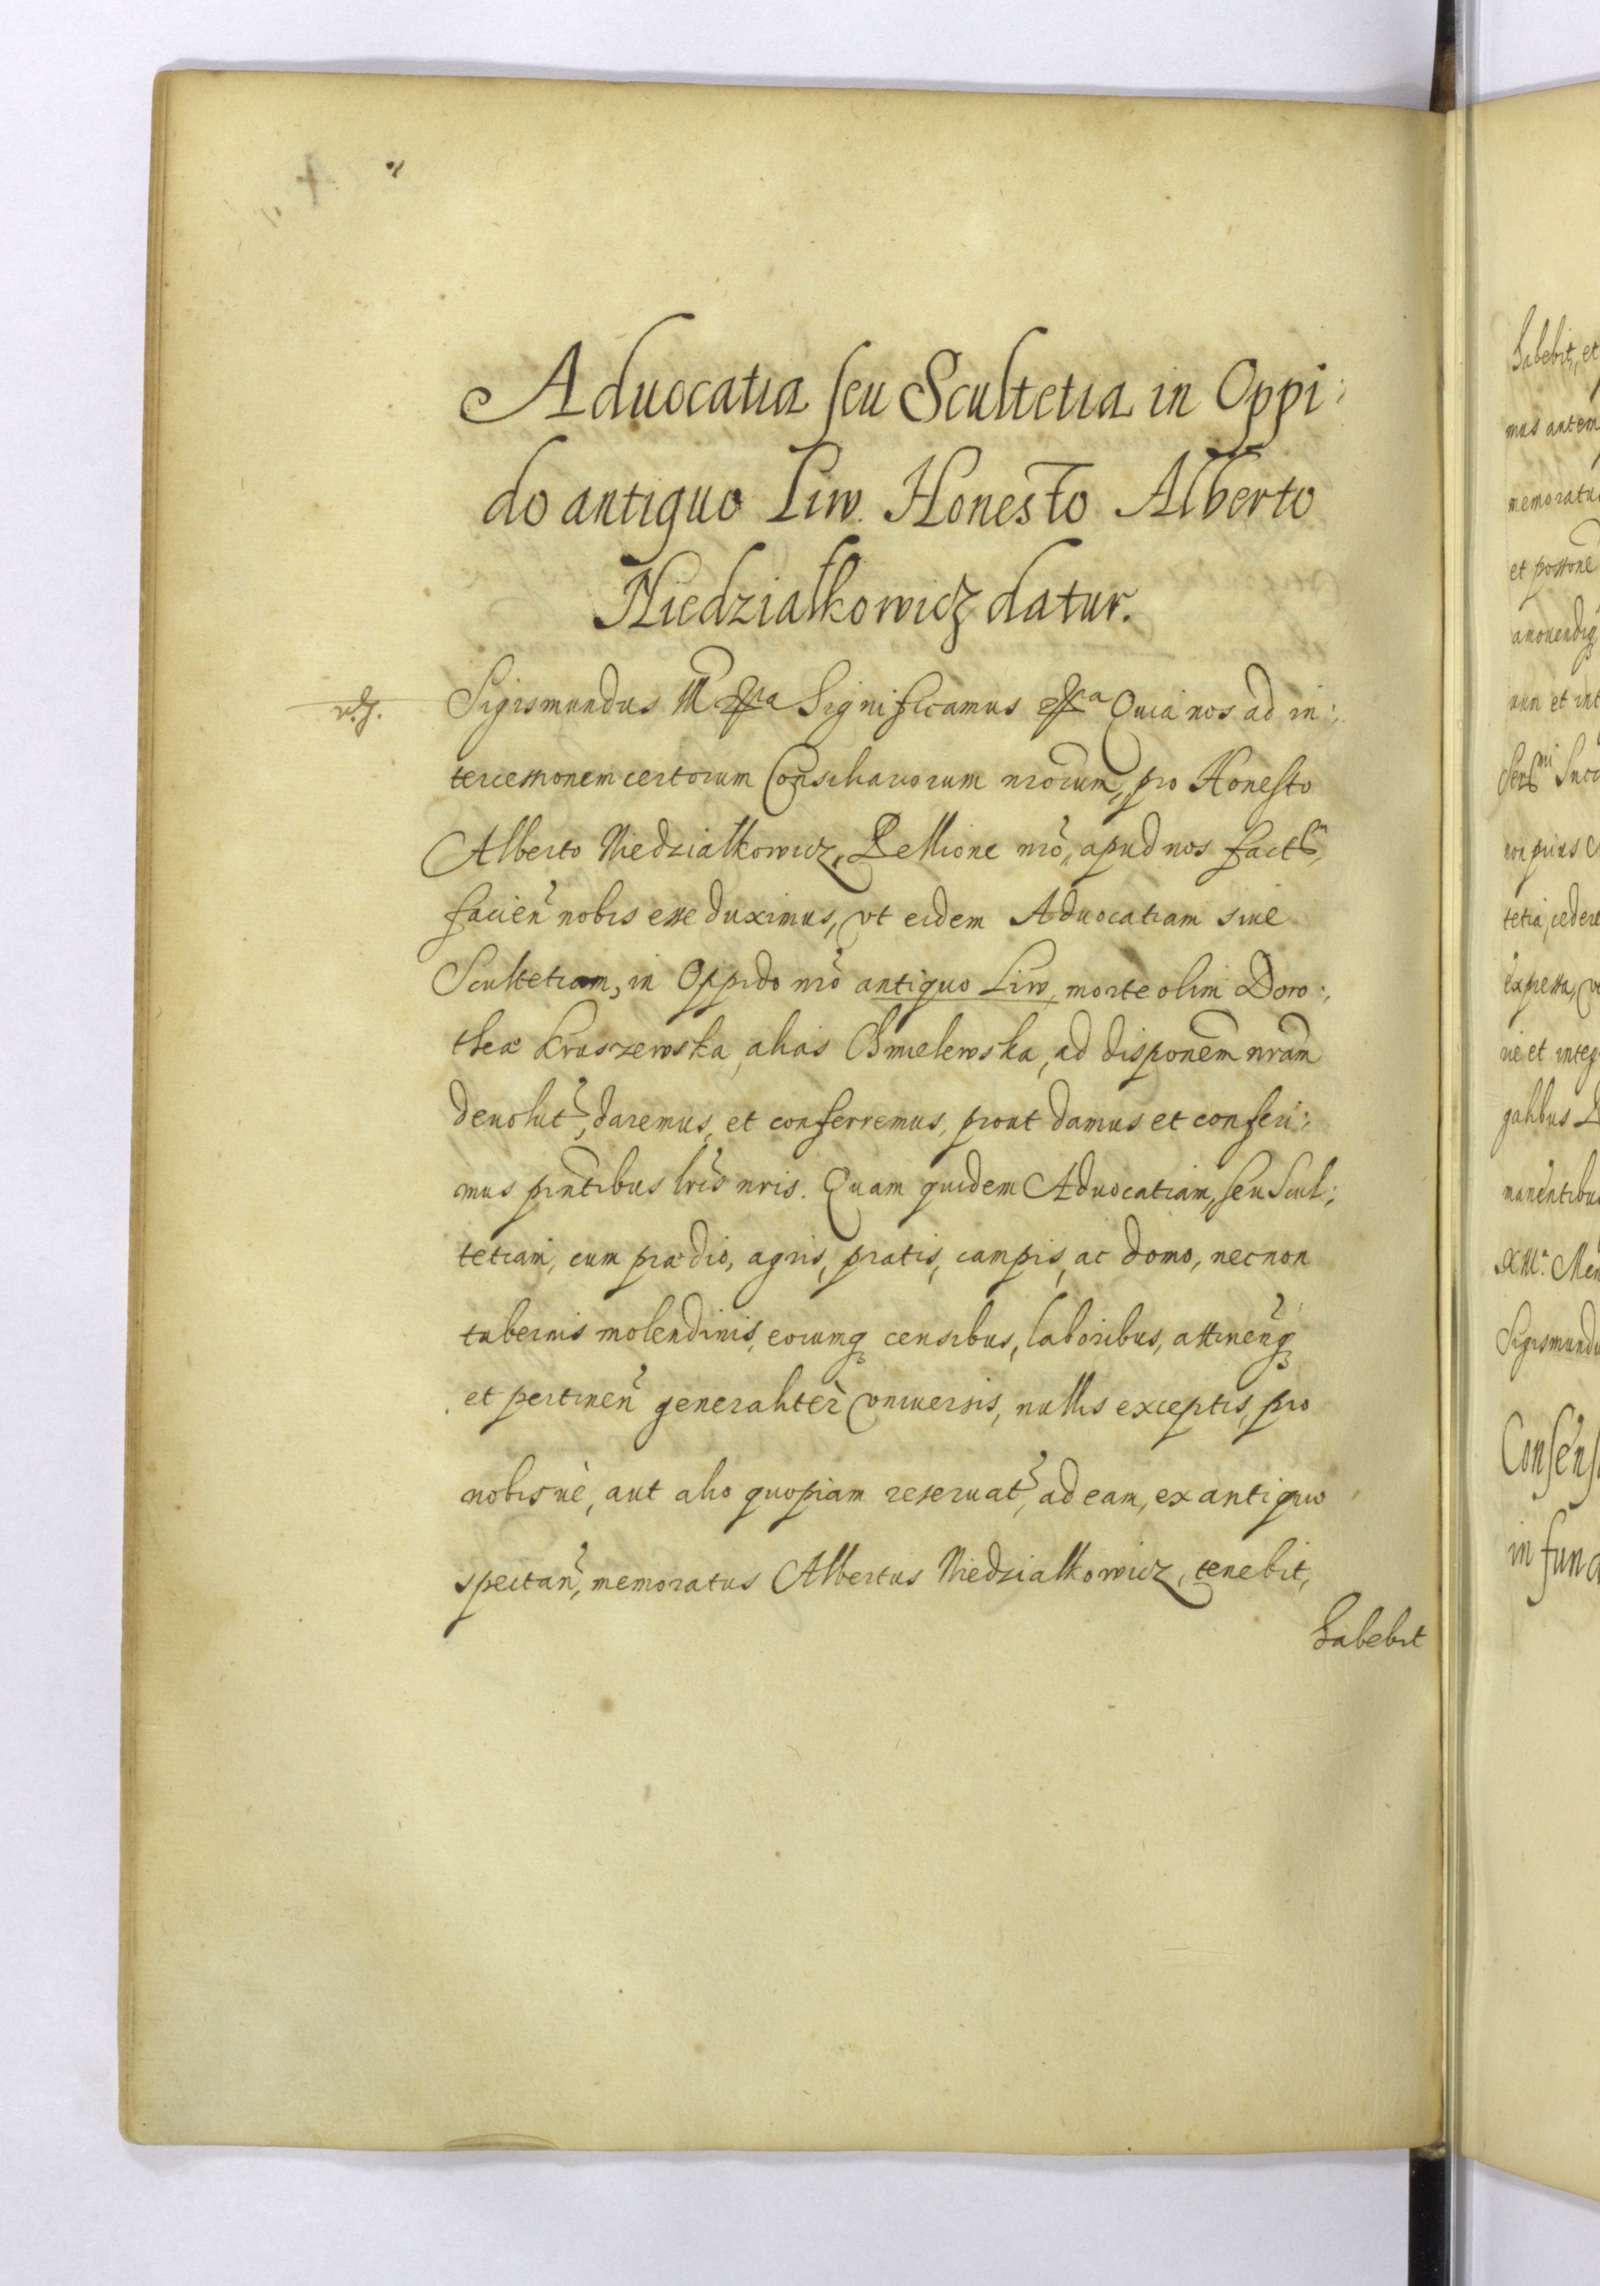 Aduocatia seu Scultetia in Oppi:
do antiquo Liw. Honesto Alberto
Niedziałkowicz datur.
Sigismundus Significamus Quia nos ad in:
tercessionem certorum Consiliariorum nrorum, pro Honesto
Alberto Niedziałkowicz, Pellione nro, apud nos fact,
facien nobis esse duximus, vt eidem Aduocatiam siue
Scultetiam, in Oppido nro antiquo Liw, morte olim Doro:
theæ Kruszewska, alias Chmielewska, ad disponem nram
deuolut, daremus, et conferremus, prout damus et conferi:
mus pntibus lris nris. Quam quidem Aduocatiam, seu Scul:
tetiam, cum prædio, agris, pratis, campis, ac domo, necnon
tabernis molendinis, eorumq censibus, laboribus, attinenq
et pertinen generaliter vniuersis, nullis exceptis, pro
nobisuè, aut alio quopiam reseruat, ad eam, ex antiquo
spectan, memoratus Albertus Niedziałkowicz, tenebit,
habebit
habebit, et
mus autem
memoratu
et possone
amouendi
num et int
Succ
non prius
tetia, cedere
expressa,
ue et integ
galibus
manentibu
Sigismundu
Consens
in fund